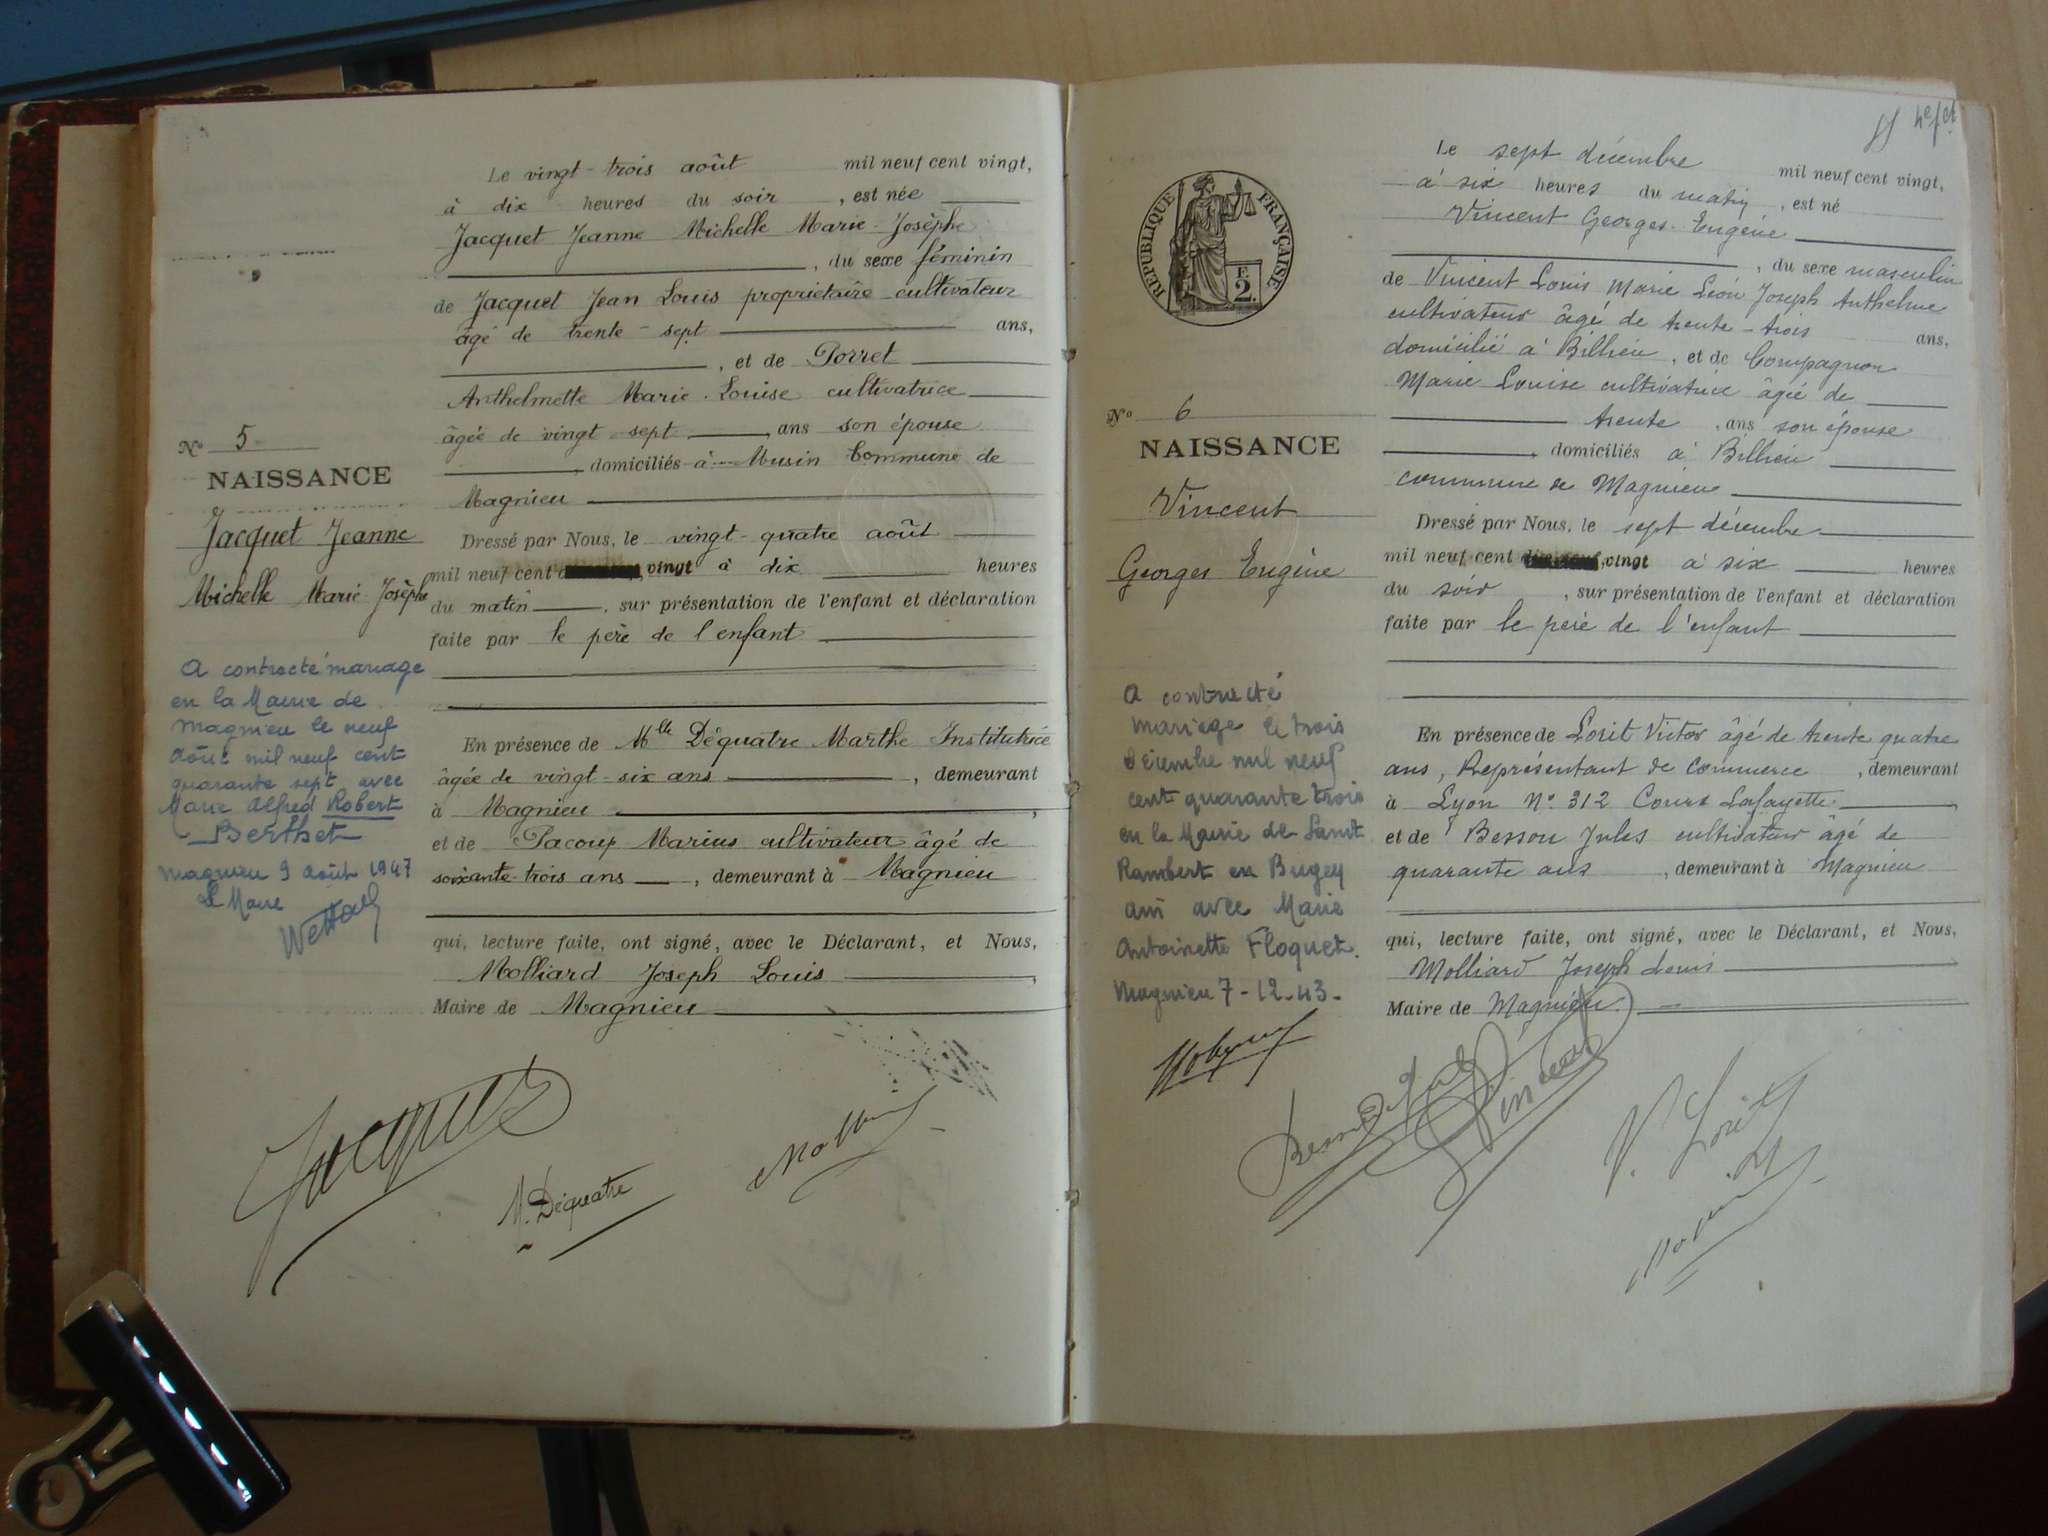 Le vingt-trois août mil neuf cent vingt,
à dix heures du soir, est née
Jacquet Jeanne Michelle Marie-Josèphe
, du sexe féminin
de Jacquet Jean Louis propriétaire-cultivateur
âgé de trente-sept ans,
, et de Porret
Anthelmette Marie-Louise cultivatrice
âgée de vingt-sept ans son épouse
, domiciliés à Musin Commune de
Magnieu
No 5
NAISSANCE
Jacquet Jeanne
Michelle Marie-Josèphe
Dressé par Nous, le vingt-quatre août
mil neuf cent vingt à dix heures
du matin, sur présentation de l'enfant et déclaration
faite par le père de l'enfant
A contracté mariage
en la Mairie de
Magnieu le neuf
août mil neuf cent
quarante sept avec
Marie Alfred Robert
Berthet
Magnieu 9 août 1947
Le Maire
En présence de Mlle Déquatre Marthe Institutrice
âgée de vingt-six ans, demeurant
à Magnieu,
et de Pacoup Marius cultivateur âgé de
soixante-trois ans, demeurant à Magnieu
qui, lecture faite, ont signé, avec le Déclarant, et Nous,
Molliard Joseph Louis,
Maire de Magnieu
Jacquet
M. Déquatre
Molliard
RÉPUBLIQUE FRANÇAISE
F.
2.
Le sept décembre mil neuf cent vingt,
à six heures du matin, est né
Vincent Georges-Eugène
, du sexe masculin
de Vincent Louis Marie Léon Joseph Anthelme
cultivateur âgé de trente-trois ans,
domicilié à Billieu, et de Compagnon
Marie Louise cultivatrice âgée de
trente, ans son épouse
, domiciliés à Billieu
commune de Magnieu
No 6
NAISSANCE
Vincent
Georges Eugène
Dressé par Nous, le sept décembre
mil neuf cent vingt à six heures
du soir, sur présentation de l'enfant et déclaration
faite par le père de l'enfant
A contracté
mariage le trois
décembre mil neuf
cent quarante trois
en la Mairie de Saint
Rambert en Bugey
ain avec Marie
Antoinette Floquet.
Magnieu 7-12-43-
En présence de Lorit Victor âgé de trente quatre
ans, Représentant de commerce, demeurant
à Lyon No. 312 Cours Lafayette,
et de Besson Jules cultivateur âgé de
quarante ans, demeurant à Magnieu
qui, lecture faite, ont signé, avec le Déclarant, et Nous,
Molliard Joseph Louis
Maire de Magnieu
Besson Jules
Vincent
V. Lorit
Molliard